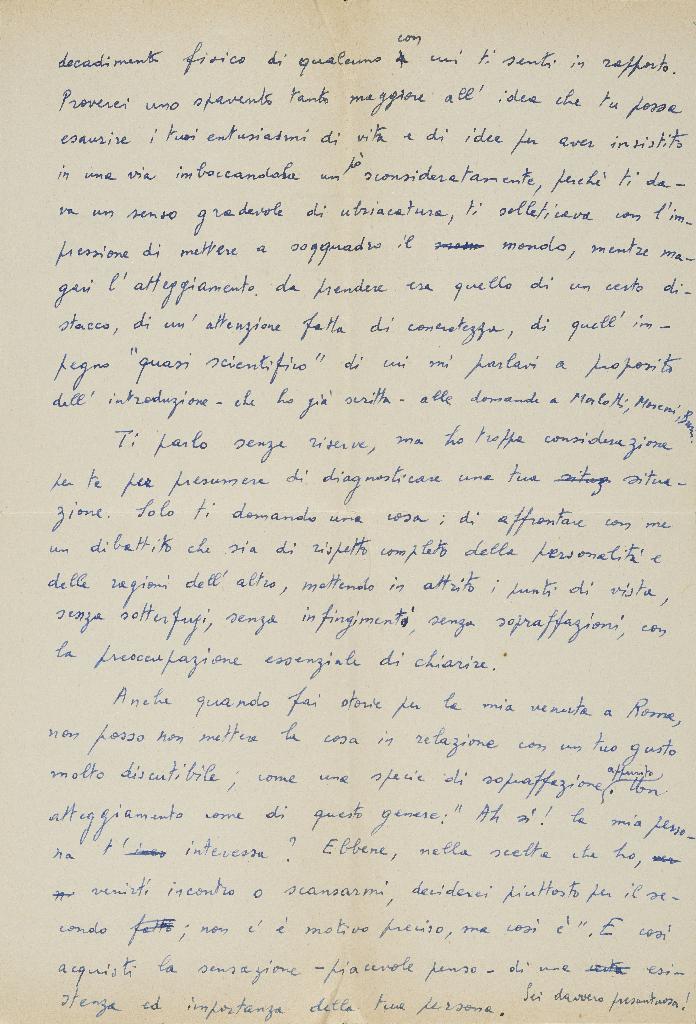 decadimento fisico di qualcuno con cui ti senti in rapporto.
Proverei uno spavento tanto maggiore all'idea che tu possa
esaurire i tuoi entusiasmi di vita e di idee per aver insistito
in una via imboccandola un pò sconsideratamente, perchè ti da-
va un senso gradevole di ubriacatura, ti solleticava con l'im-
pressione di mettere a soqquadro il mondo, mentre ma-
gari l'atteggiamento da prendere era quello di un certo di-
stacco, di un'attenzione fatta di concretezza, di quell'im-
pegno "quasi scientifico" di cui mi parlavi a proposito
dell'introduzione - che ho già scritta - alle domande a Morlotti, Moreni,
Ti parlo senza riserve, ma ho troppa considerazione
per te per presumere di diagnosticare una tua situa-
zione. Solo ti domando una cosa: di affrontare con me
un dibattito che sia di rispetto completo della personalità e
delle ragioni dell'altro, mettendo in attrito i punti di vista,
senza sotterfugi, senza infingimenti, senza sopraffazioni, con
la preoccupazione essenziale di chiarire.
Anche quando fai storie per la mia venuta a Roma,
non posso non mettere la cosa in relazione con un tuo gusto
molto discutibile; come una specie di sopraffazione, appunto. Un
atteggiamento come di questo genere: "Ah si! la mia perso-
na t' interessa? Ebbene, nella scelta che ho,
venirti incontro o scansarmi, deciderei piuttosto per il se-
condo; non c'è motivo preciso, ma così è". E così
acquisti la sensazione - piacevole penso - di una esi-
stenza ed importanza della tua persona. Sei davvero presuntuosa!